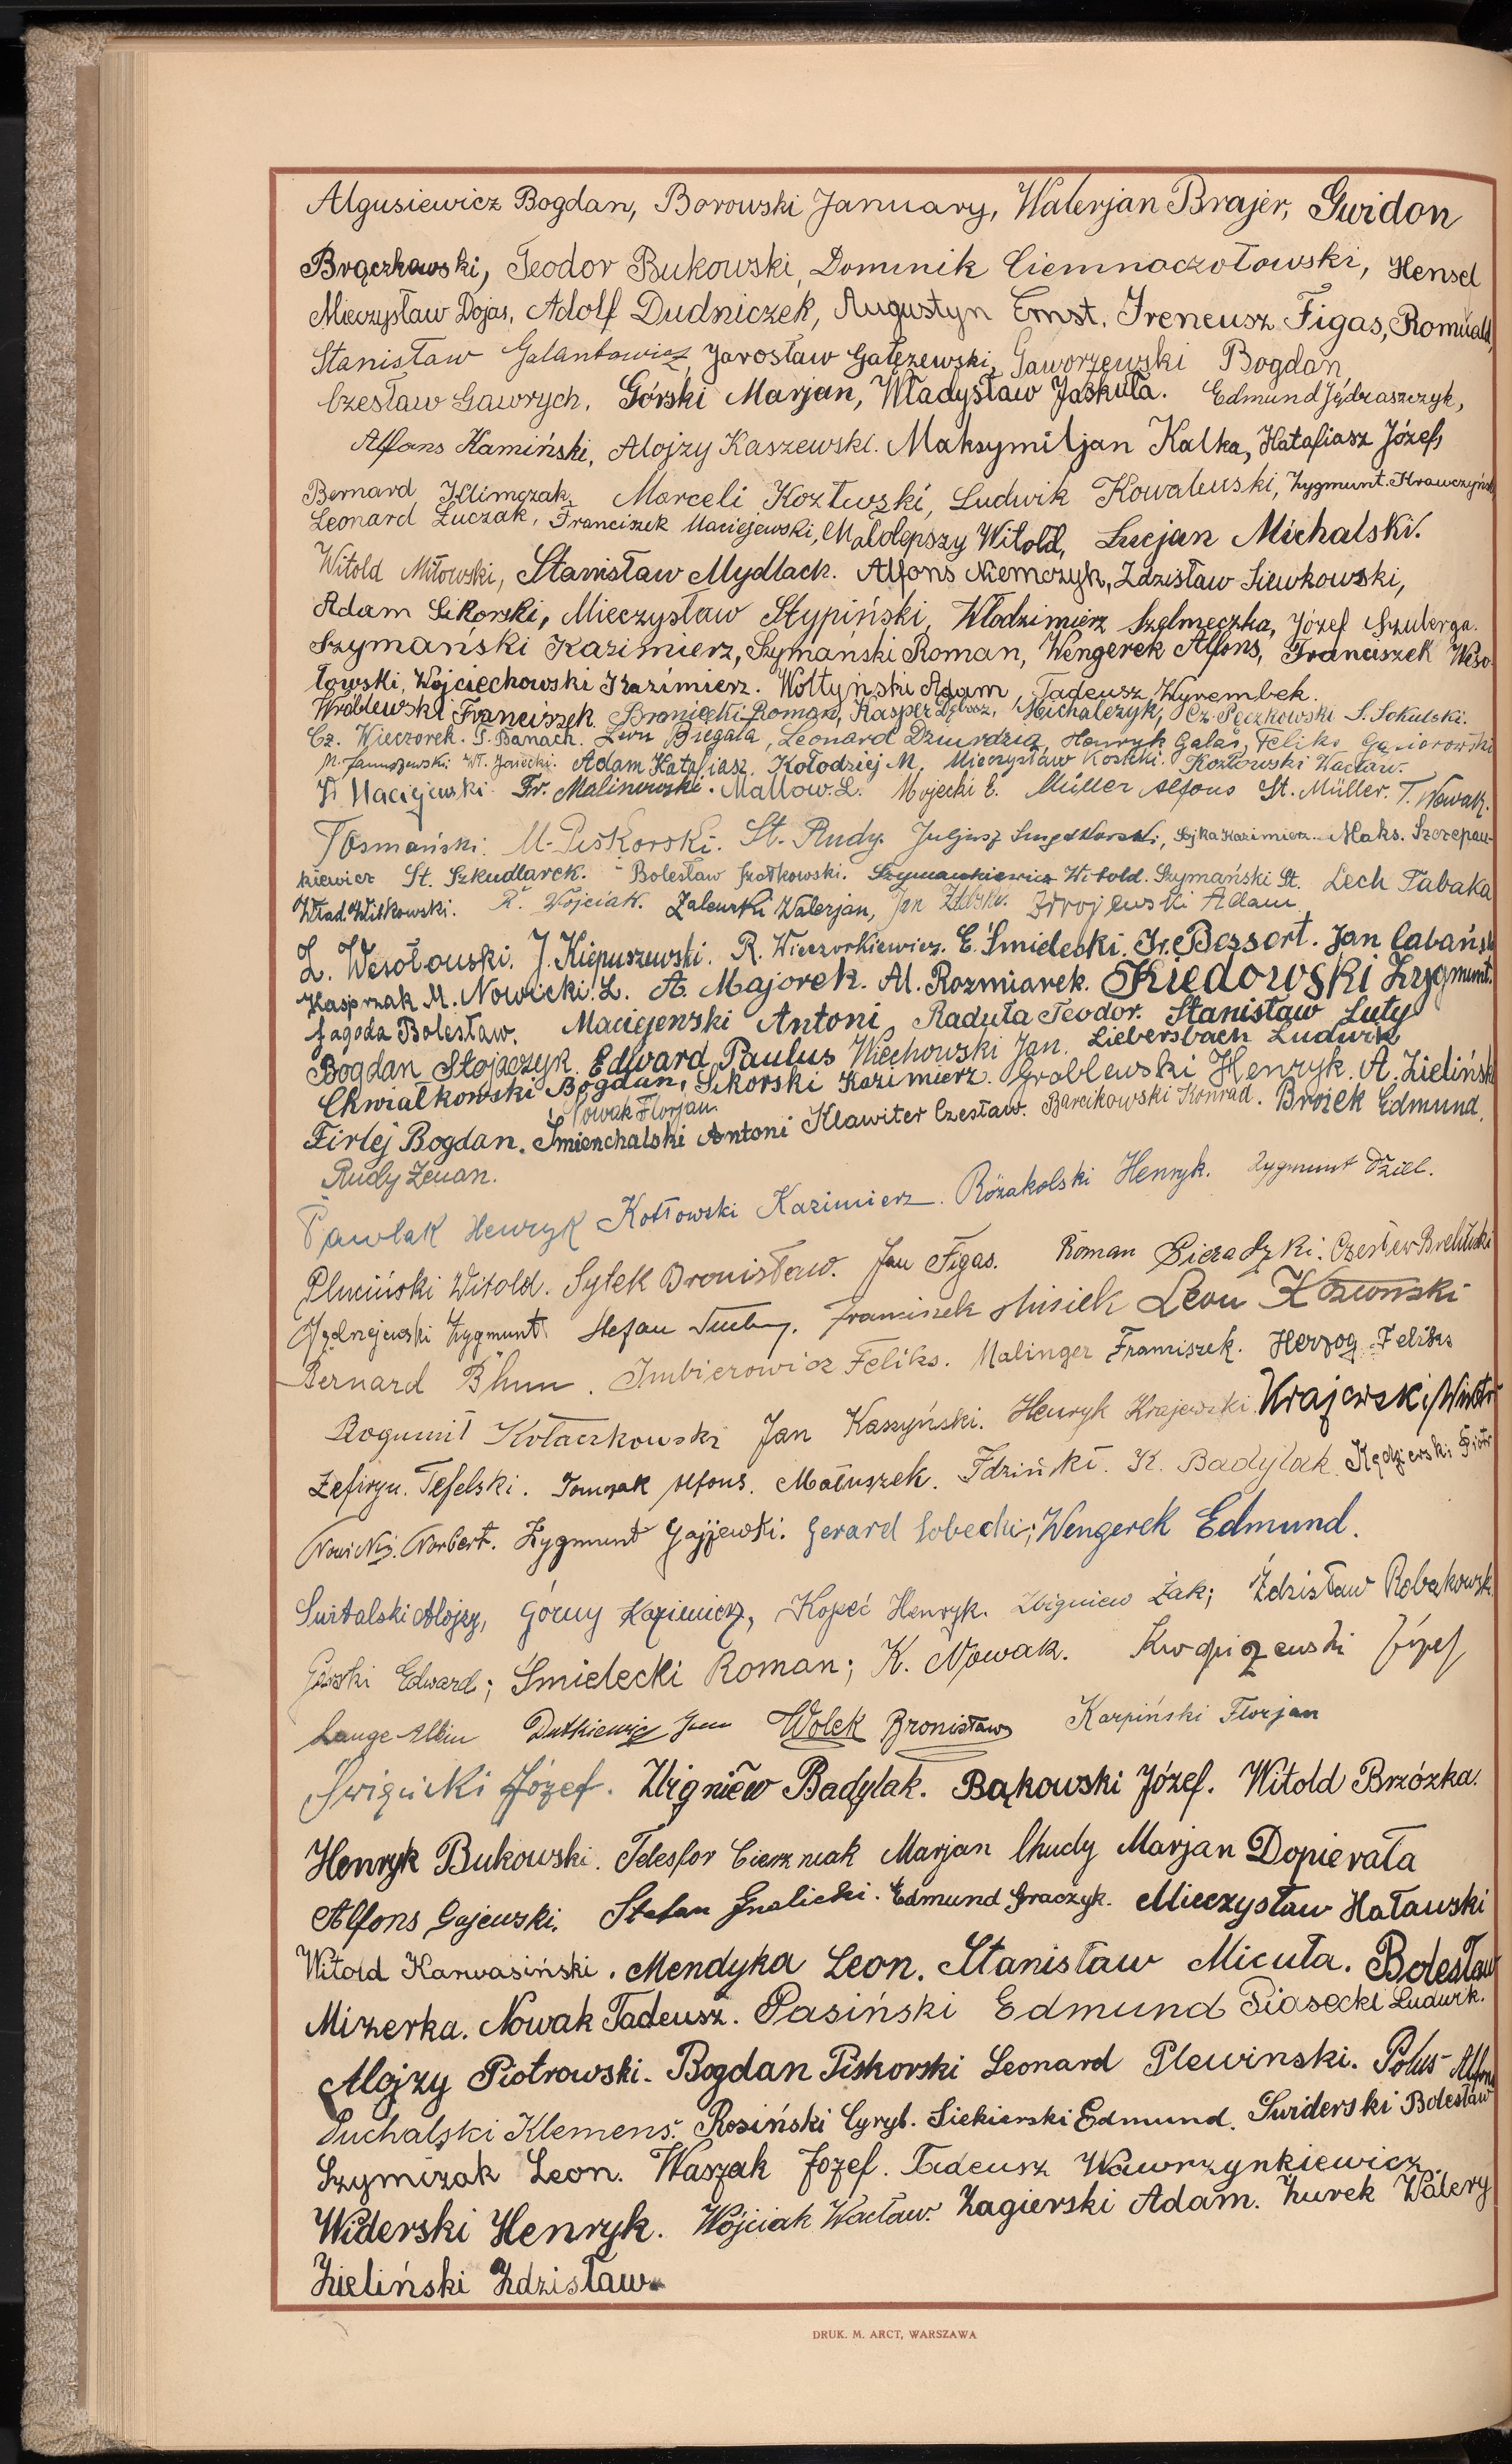 Algusiewicz Bogdan, Borowski January, Walerjan Brajer, Gwidon
Brączkowski, Teodor Bukowski, Dominik Ciemnoczołowski, Hensel
Mieczysław Dojas, Adolf Dudniczek, Augustyn Ernst, Ireneusz Figas, Romuald,
Stanisław Galantowicz, Jarosław Gałęzewski, Gaworzewski Bogdan,
Czesław Gawrych, Górski Marjan, Władysław Jaskuła. Edmund Jędraszczyk,
Alfons Kamiński, Alojzy Kaszewski. Maksymiljan Kalka, Katafiasz Józef,
Bernard Klimczak, Marceli Kozłwski, Ludwik Kowalewski, Zygmunt. Krawczyński
Leonard Łuczak, Franciszek Maciejewski, Małolepszy Witold, Lucjan Michalski.
Witold Miłowski, Stanisław Mydlach. Alfons Niemczyk, Zdzisław Siewkowski,
Adam Sikorski, Mieczysław Stypiński, Włodzimierz Szelmeczka, Józef Szuberga.
Szymański Kazimierz, Szymański Roman, Wengerek Alfons, Franciszek Weso-
łowski, Wojciechowski Kazimierz. Wołtyński Adam, Tadeusz Wyrembek.
Wróblewski Franciszek. Braniecki Roman, Kasper Michalczyk, Cz. Pęczkowski S. Sokulski.
Cz. Wieczorek. S. Banach. Leon Biegała, Leonard Dziurdzia, Henryk Galas, Feliks Gąsiorowski
M. Januszewski. Wł. Jasiecki. Adam Katafiasz. Kołodziej M. Mieczysław Kosicki. Kozłowski Wacław.
Maciejewski. Fr. Malinowski. Mallow. L. Mojecki E. Müller Alfons St. Müller. T. Nowak.
T Osmański. M. Piskorski. St. Rudy. Juljusz Sojka Kazimierz. Maks. Szczepan-
kiewicz St. Szkudlarek. Bolesław Szatkowski. Szymankiewicz Witold. Szymański St. Lech Tabaka
Wład. Witkowski. R. Wojciak. Zalewski Walerjan, Jan Zdrojewski Adam
L. Wesołowski. J. Kiepuszewski. R. Wieczorkiewicz. E. Śmielecki. Fr. Bessert. Jan Cabański
Kasprzak M. Nowicki. L. A. Majorek. Al. Rozmiarek. Kiedowski Zygmunt.
Jagoda Bolesław. Maciejewski Antoni, Raduła Teodor. Stanisław Luty
Bogdan Stojaczyk. Edward Paulus Wiechowski Jan. Liebersbach Ludwik
Chwiałkowski Bogdan, Sikorski Kazimierz. Groblewski Henryk. A. Zieliński
Nowak Florjan.
Firlej Bogdan. Śmiechalski Antoni Klawiter Czesław. Barcikowski Konrad. Brożek Edmund.
Rudy Zenan.
Pawlak Henryk Kotłowski Kazimierz. Różakolski Henryk. Zygmunt Dziel.
Pluciński Witold. Sytek Bronisław. Jan Figas. Roman Sieradzki. Czesław
Zygmunt Stefan Franciszek Misiek Leon
Bernard Blum. Imbierowicz Feliks. Malinger Franciszek. Herzog Feliks
Bogumił Kołaczkowski Jan Kaszyński. Henryk Krajewski. Krajewski Wiktor
Zefiryn. Tefelski. Tomczak Alfons. Matuszek. Idziński. K. Badylak. Kędzierski Piotr
Nowicki. Norbert. Zygmunt Gajewski. Gerard Sobecki; Wengerek Edmund.
Świtalski Alojzy, Górny Kazimierz, Kopeć Henryk. Zbigniew Żak; Zdzisław Robakowski
Górski Edward; Śmielecki Roman; K. Nowak. Kwapiszewski Józef
Lange Albin Dutkiewicz Jan Wolek Bronisław Karpiński Florjan
Świgucki Józef. Zbigniew Badylak. Bąkowski Józef. Witold Brzózka.
Henryk Bukowski. Telesfor Cierzniak Marjan Chudy Marjan Dopierała
Alfons Gajewski. Stefan Gnalicki. Edmund Graczyk. Mieczysław Haławski
Witold Karwasiński. Mendyka Leon. Stanisław Micuła. Bolesław
Mizerka. Nowak Tadeusz. Pasiński Edmund Piasecki Ludwik.
Alojzy Piotrowski. Bogdan Piskorski Leonard Plewinski. Polus Alfons
Puchalski Klemens. Rosiński Cyryl. Siekierski Edmund. Świderski Bolesław
Szymczak Leon. Waszak Józef. Tadeusz Wawrzynkiewicz.
Widerski Henryk. Wójciak Wacław. Zagierski Adam. Żurek Walery
Zieliński Zdzisław
DRUK. M. ARCT, WARSZAWA